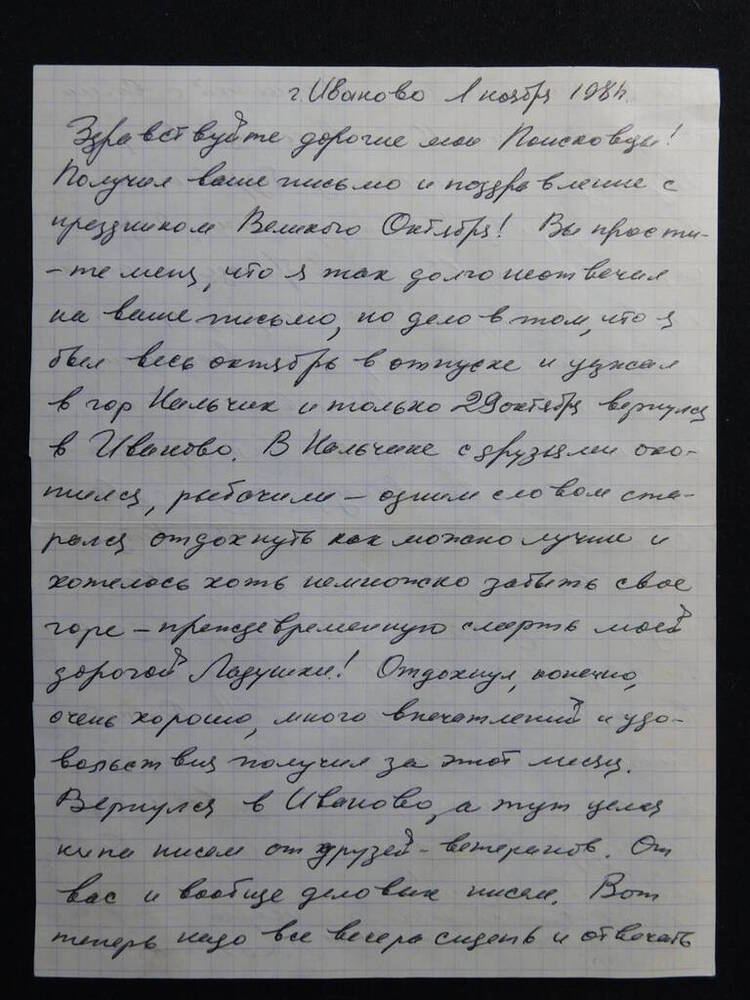 г. Иваново 1 ноября 198
Здравствуйте дорогие мои Поисковцы!
Получил ваше письмо и поздравление с
праздником Великого Октября! Вы прости-
-те меня, что я так долго не отвечал
на ваше письмо, но дело в том, что я
был весь октябрь в отпуске и уезжал
в гор Нальчик и только 29 октября вернулся
в Иваново. В Нальчике с друзьями охо-
тился, рыбачили – одним словом ста-
рался отдохнуть как можно лучше и
хотелось хоть немножко забыть свое
горе – преждевременную смерть моей
дорогой Ладушки! Отдохнул, конечно,
очень хорошо, много впечатлений и удо-
вольствия получил за этот месяц.
Вернулся в Иваново, а тут целая
кипа писем от друзей – ветеранов. От
вас и вообще деловых писем. Вот
теперь надо все вечера сидеть и отвечать